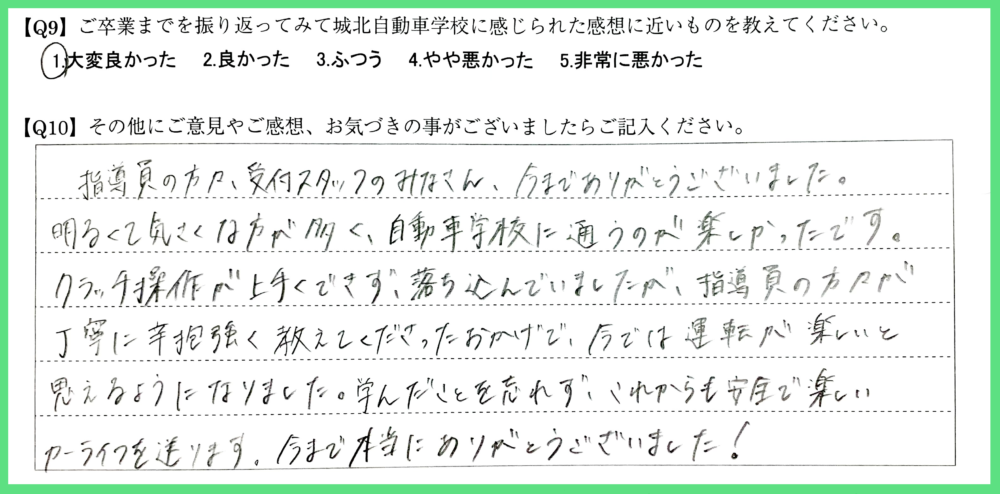 【Q9】ご卒業までを振り返ってみて城北自動車学校に感じられた感想に近いものを教えてください。
1.大変良かった 2.良かった 3.ふつう 4.やや悪かった 5.非常に悪かった
【Q10】その他にご意見やご感想、お気づきの事がございましたらご記入ください。
指導員の方々、受付スタッフのみなさん、今までありがとうございました。
明るくて気さくな方が多く、自動車学校に通うのが楽しかったです。
クラッチ操作が上手くできず、落ち込んでいましたが、指導員の方々が
丁寧に辛抱強く教えてくださったおかげで、今では運転が楽しいと
思えるようになりました。学んだことを忘れず、これからも安全で楽しい
カーライフを送ります。今まで本当にありがとうございました!